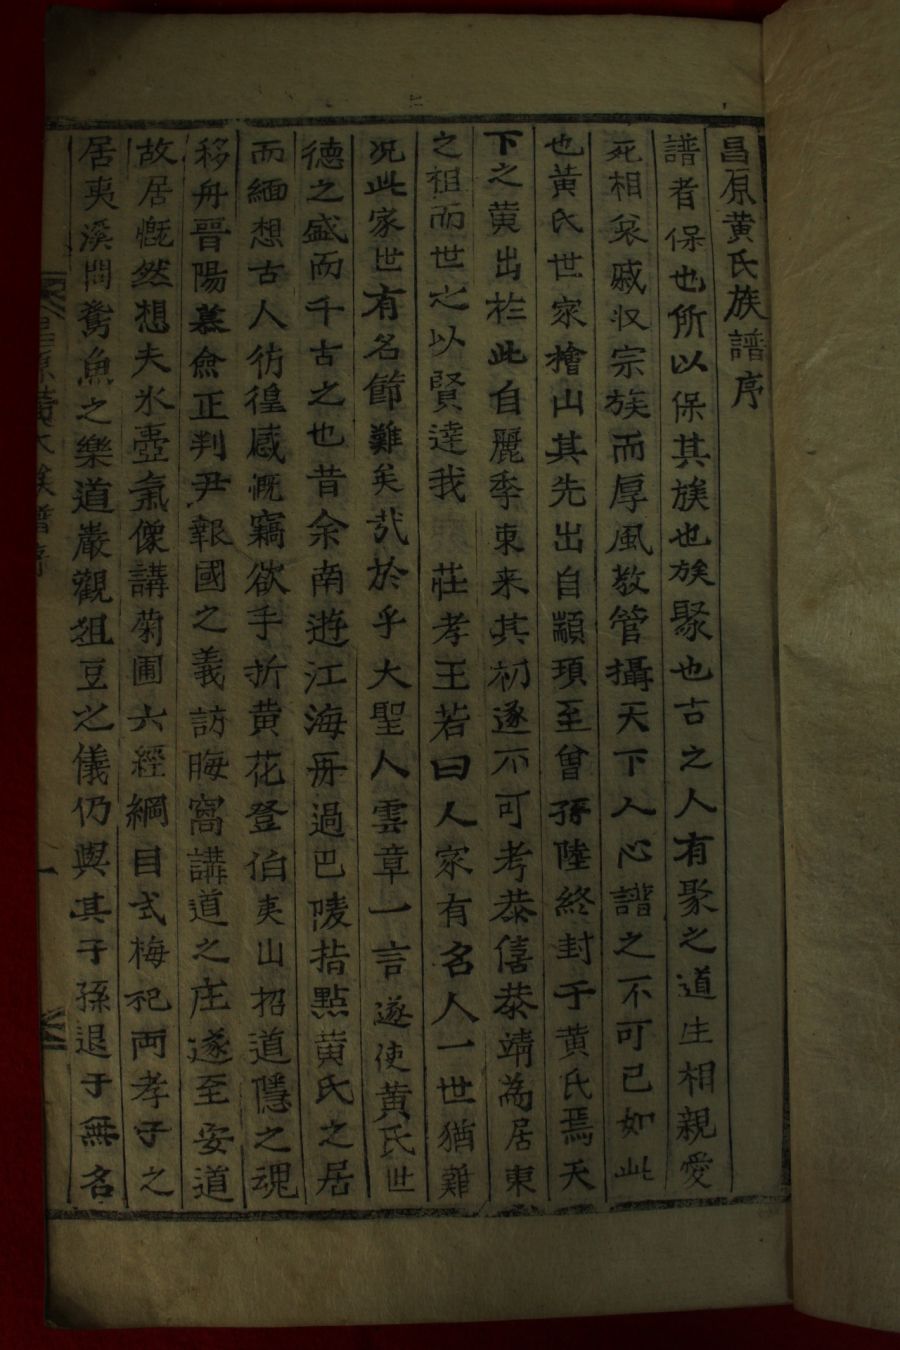 昌原黃氏族譜序
譜者保也所以保其族也族聚也古之人有聚之道生相親愛
死相哀戚収宗族而厚風敎管攝天下人心譜之不可已如此
也黃氏世家檜山其先出自顓頊至曾孫陸終封于黃氏焉天
下之黃出於此自麗季東来其初遂不可考恭僖恭靖為居東
之祖而世之以賢達我 莊孝王若曰人家有名人一世猶難
况此家世有名節難矣㢤於乎大聖人雲章一言遂使黃氏世
德之盛而千古之也昔余南遊江海再過巴陵指點黃氏之居
而緬想古人彷徨感慨竊欲手折黄花登伯夷山招道隱之魂
移舟晉陽慕僉正判尹報國之義訪晦窩講道之庄遂至安道
故居慨然想夫氷壺氣像講菊圃六經綱目式梅祀両孝子之
居夷溪問鴦魚之樂道巖觀俎豆之儀仍與其子孫退于無名
昌原黃氏族譜序
一